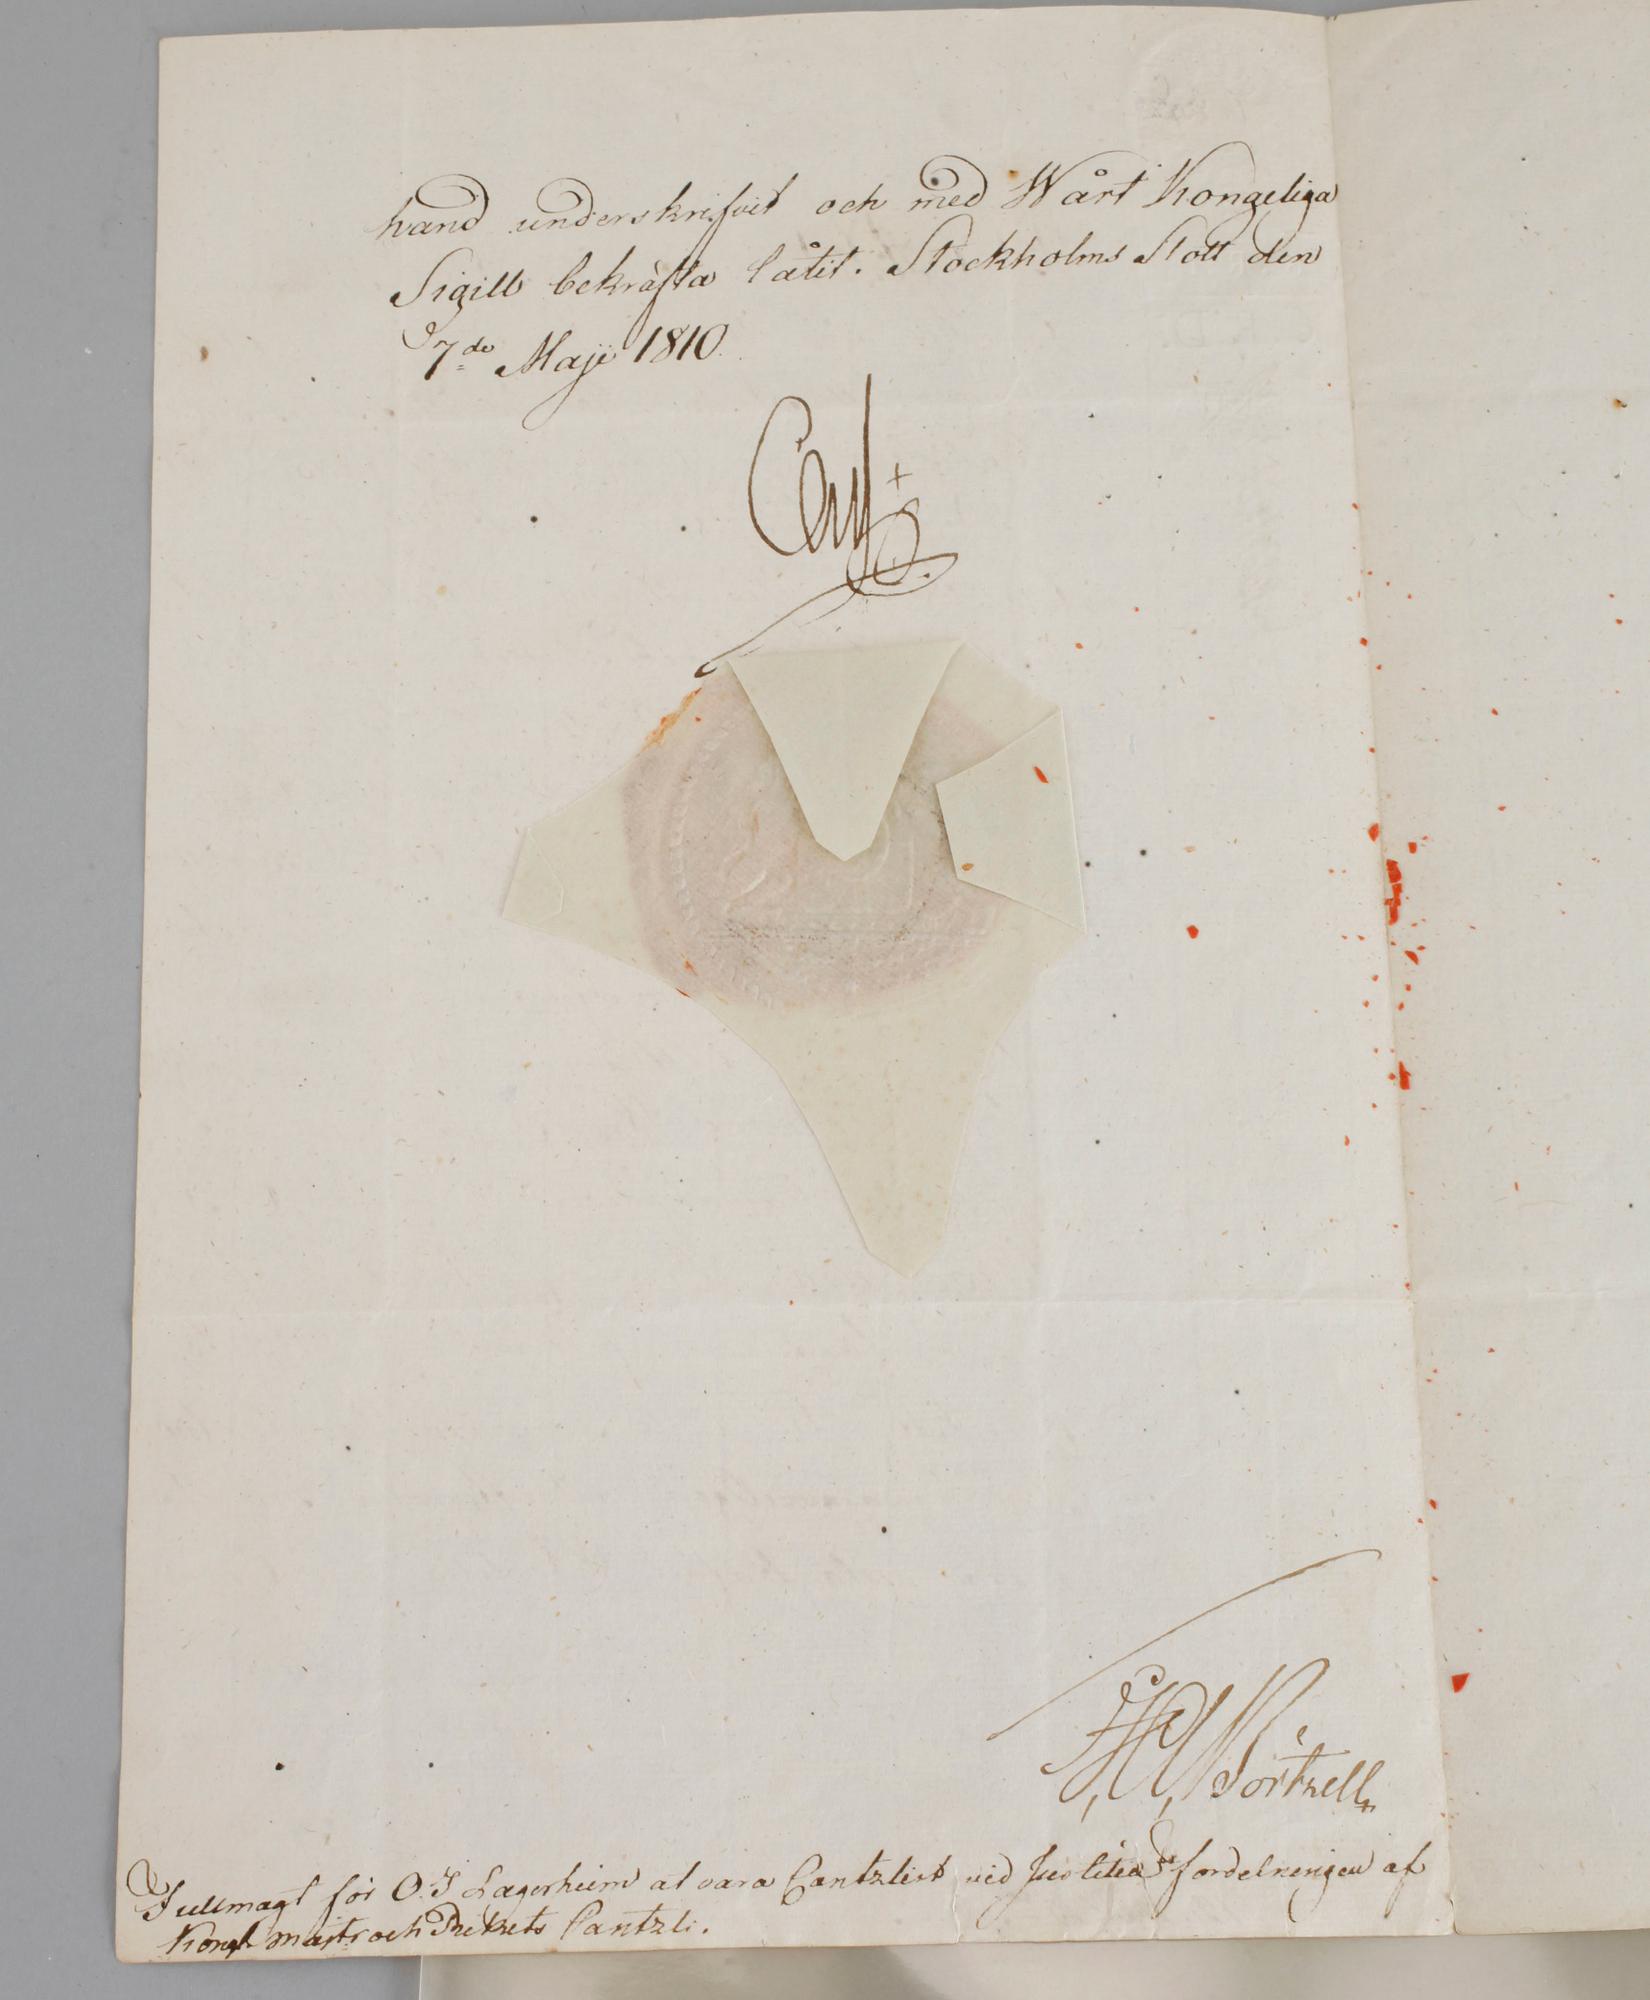 hand underskrifvit och med Wårt Kongeliga
Sigill bekräfta låtit. Stockholms Slott den
7de Maji 1810.
Carl
Fullmagt för O. J Lagerheim at vara Cantzlist vid Justitiæ fördelningen af
Kongl Majts och Rikets Cantzli.